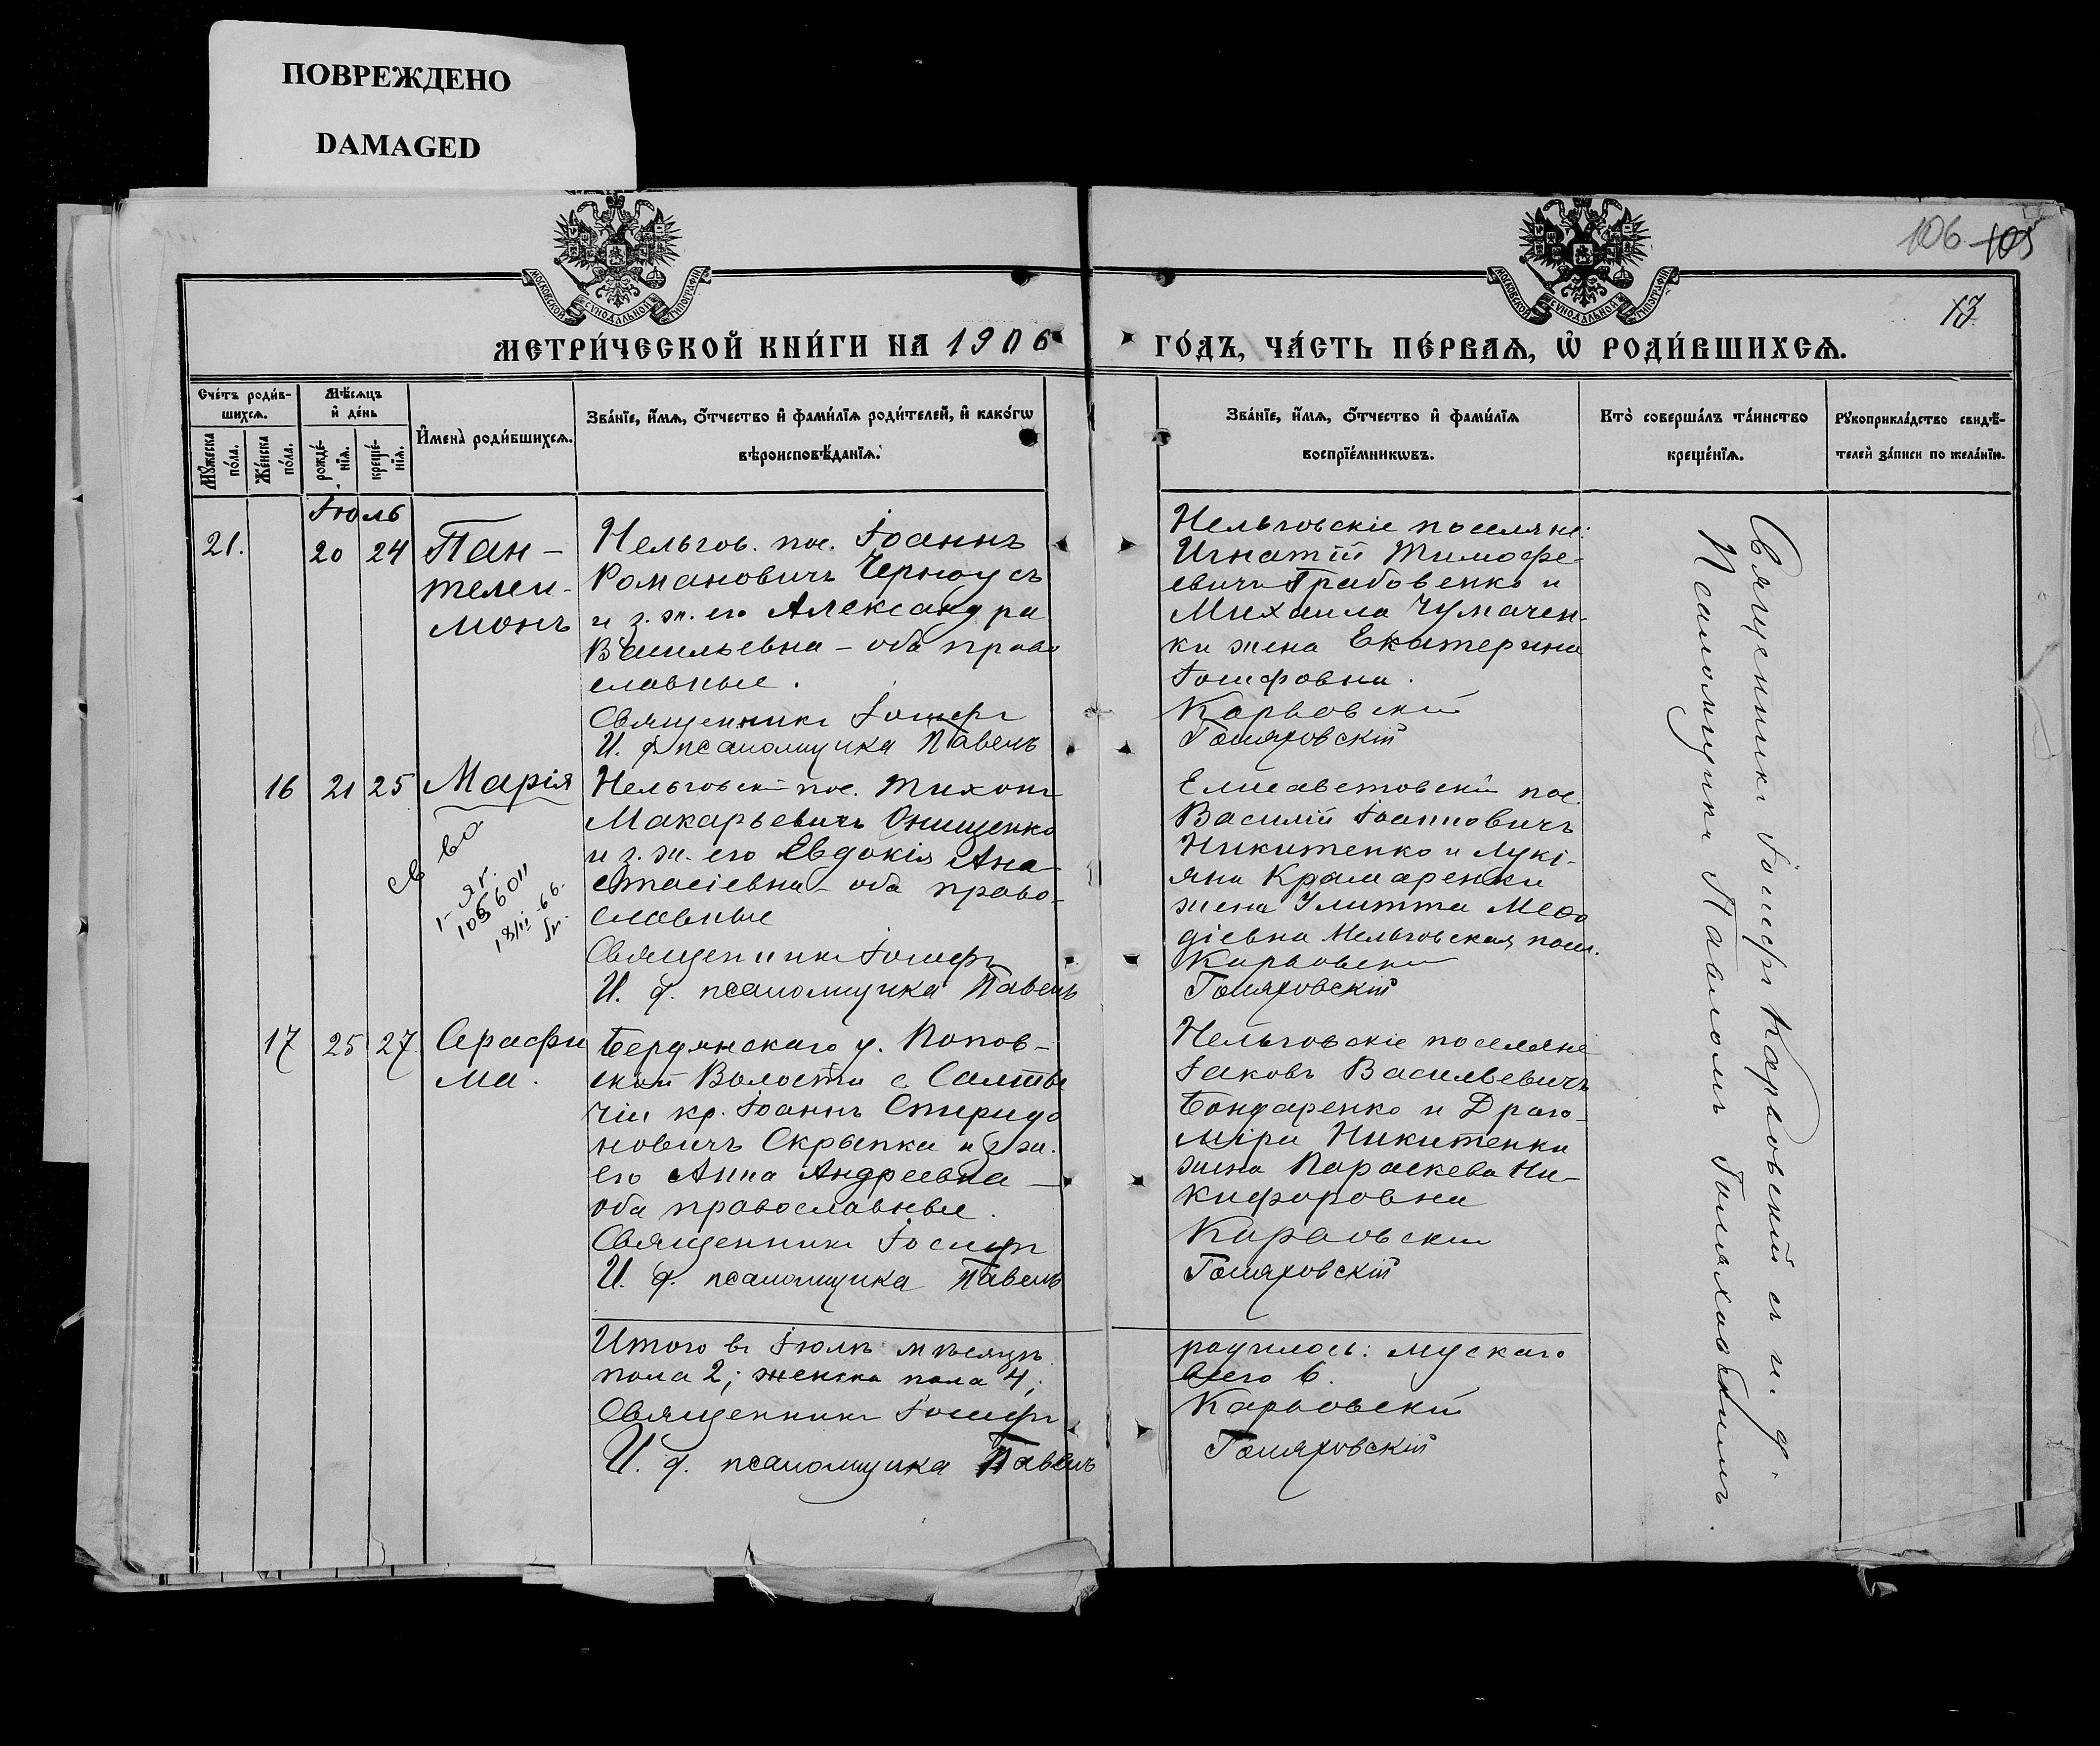 ПОВРЕЖДЕНО
DAMAGED
106 105
13
МОСКОВСКОЙ СѴНОДАЛЬНОЙ ТИПОГРАФІИ
МОСКОВСКОЙ СѴНОДАЛЬНОЙ ТИПОГРАФІИ
МЕТРИ́ЧЕСКОЙ КНИ́ГИ НА 1906
ГО́ДЪ, ЧА́СТЬ ПЕ́РВАѦ, Ѡ҆ РОДИ́ВШИХСѦ.
Сче́тъ роди́в-
шихсѧ.
Мꙋ́жеска
по́ла.
Же́нска
по́ла.
Мѣ́сѧцъ
и҆ де́нь
рожде́-
нїѧ.
креще́-
нїѧ.
И҆мена̀ роди́вшихсѧ.
Зва́нїе, и҆́мѧ, ѻ҆́тчество и҆ фами́лїѧ роди́телей, и҆ како́гѡ
вѣроисповѣ́данїѧ.
Зва́нїе, и҆́мѧ, ѻ҆́тчество и҆ фами́лїѧ
воспрїе́мникѡвъ.
Кто̀ соверша́лъ та́инство
креще́нїѧ.
Рꙋкоприкла́дство свидѣ́-
телей за́писи по жела́нїю.
Іюль
21.
20
24
Пан-
телеи-
монъ
Нельгов. пос. Іоаннъ
Романовичъ Черноусъ
и з. ж. его Александра
Васильевна - оба право
славные.
Священникъ Іосифъ
И. д. псаломщика Павелъ
Нельговскіе поселяне:
Игнатій Тимофе-
евичъ Грабовенко и
Михаила Чумачен-
ки жена Екатерина
Іосифовна.
Карповскій
Голяховскій
16
21
25
Марія
св во
18/II-66.
Нельговскій пос. Тихонъ
Макарьевичъ Онищенко
и з. ж. его Евдокія Ана-
стасіевна - оба право-
славные
Священникъ Іосифъ
И. д. псаломщика Павелъ
Елисаветовскій пос.
Василій Іоанновичъ
Никитенко и Лукі-
яна Крамаренки
жена Улитта Меѳо
діевна Нельговская посел.
Карповскій
Голяховскій
17
25
27.
Серафи
ма.
Бердянскаго у. Попов-
ской Волости с. Салты
чіи кр. Іоаннъ Спиридо
новичъ Скрыпка и з. ж.
его Анна Андреевна -
оба православные.
Священникъ Іосифъ
И. д. псаломщика Павелъ
Нельговскіе поселяне
Іаковъ Васильевичъ
Бондаренко и Драго-
міра Никитенки
жена Параскева Ни-
кифоровна
Карповскій
Голяховскій
Итого въ Іюлѣ мѣсяцѣ
пола 2; женска пола 4;
Священникъ Іосифъ
И. д. псаломщика Павелъ
родилось: мускаго
всего 6.
Карповскій
Голяховскій
Священникъ Іосифъ Карповскій съ и. д.
Псаломщика Павломъ Голяховскимъ.